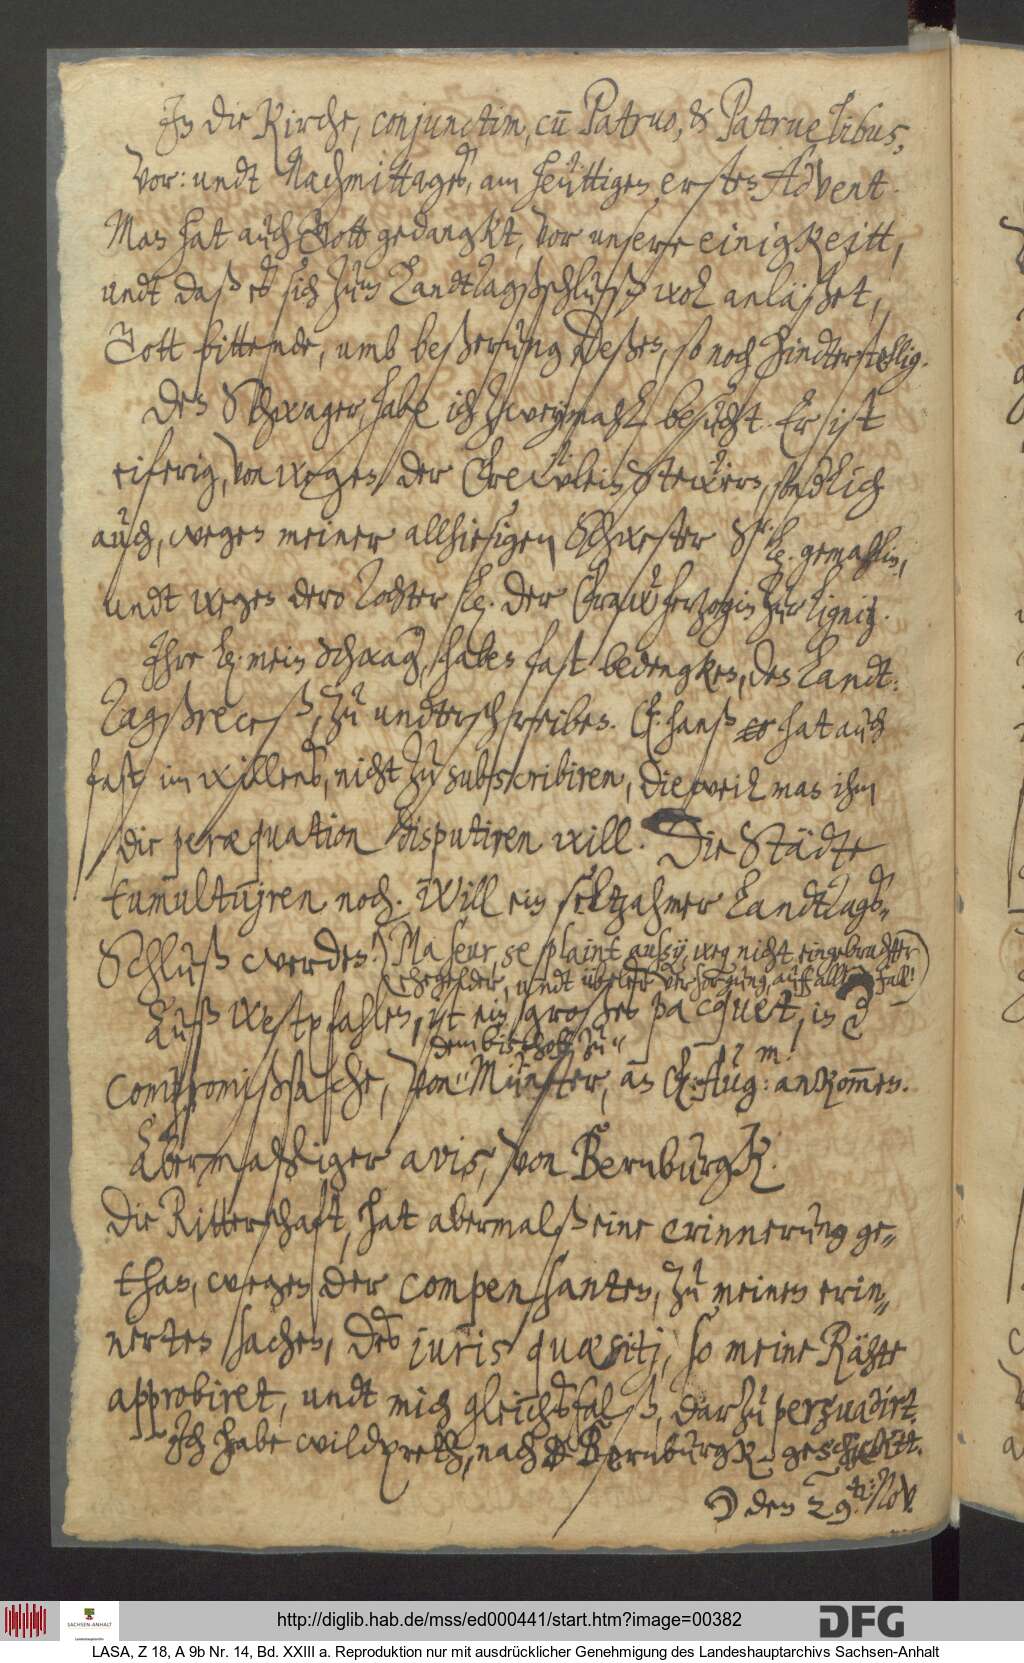 In die Kirche, conjunctim, cũ Patruo, & Patruelibus,
vor: undt Nachmittages, am heüttigen ersten Advent.
Man hat auch Gott gedangkt, vor unsere einigkeitt,
undt daß es sich zum Landtagßschluß wol anläßet,
Gott bittende, umb beßerung deßen, so noch hinderstellig.
Den Schwager, habe ich zweymahl besucht. Er ist
eiferig, von wegen der Frewlein Stewer, endlich
auch, wegen meiner allhiesigen Schwester S. L. gemahlin,
undt wegen dero Tochter L. der Fraw Herzogin zur Lignitz.
Ihre L. mein Schwag. haben fast bedengken, den Landt-
Tagßreceß, zu undterschreiben. F. Hanß hat auch
fast im willens, nicht zu subscribiren, dieweil man ihm
die peræquation disputiren will. Die Städte
tumultuiren noch. Will ein seltzahmer Landttags-
Schluß werden. (Ma soeur, se plaint aussy, weg. nicht eingebrachter
ehegelder, undt übeler versorgung, auff allen Fall!)
Auß Westpfahlen, ist ein großes pacquet, in d
compromißsache, von dem bischof zu Münster, an F. Aug: m. ankommen.
Abermahliger avis, von Bernburgk.
Die Ritterschaft, hat abermalß eine erinnerung ge-
than, wegen der compensanten, zu meinen erin-
nerten sachen, des juris quæsiti, so meine Rähte
approbiret, undt mich gleichsfalß, darzu persuadirt.
Ich habe wildpreth, nach Bernburgk geschicktt.
☽ den 29. Nov.
http://diglib.hab.de/mss/ed000441/start.htm?image=00382
SACHSEN-ANHALT
DFG
LASA, Z 18, A 9b Nr. 14, Bd. XXIII a. Reproduktion nur mit ausdrücklicher Genehmigung des Landeshauptarchivs Sachsen-Anhalt